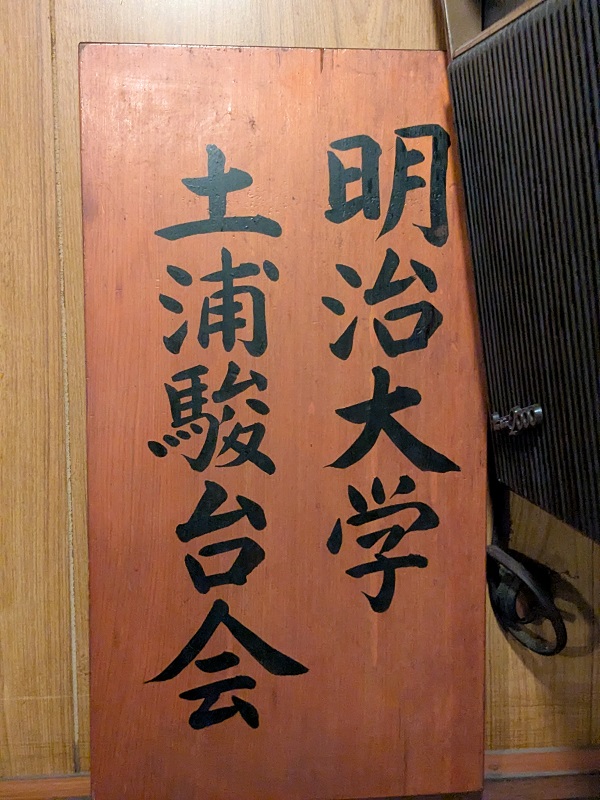 明治大学
土浦駿台会